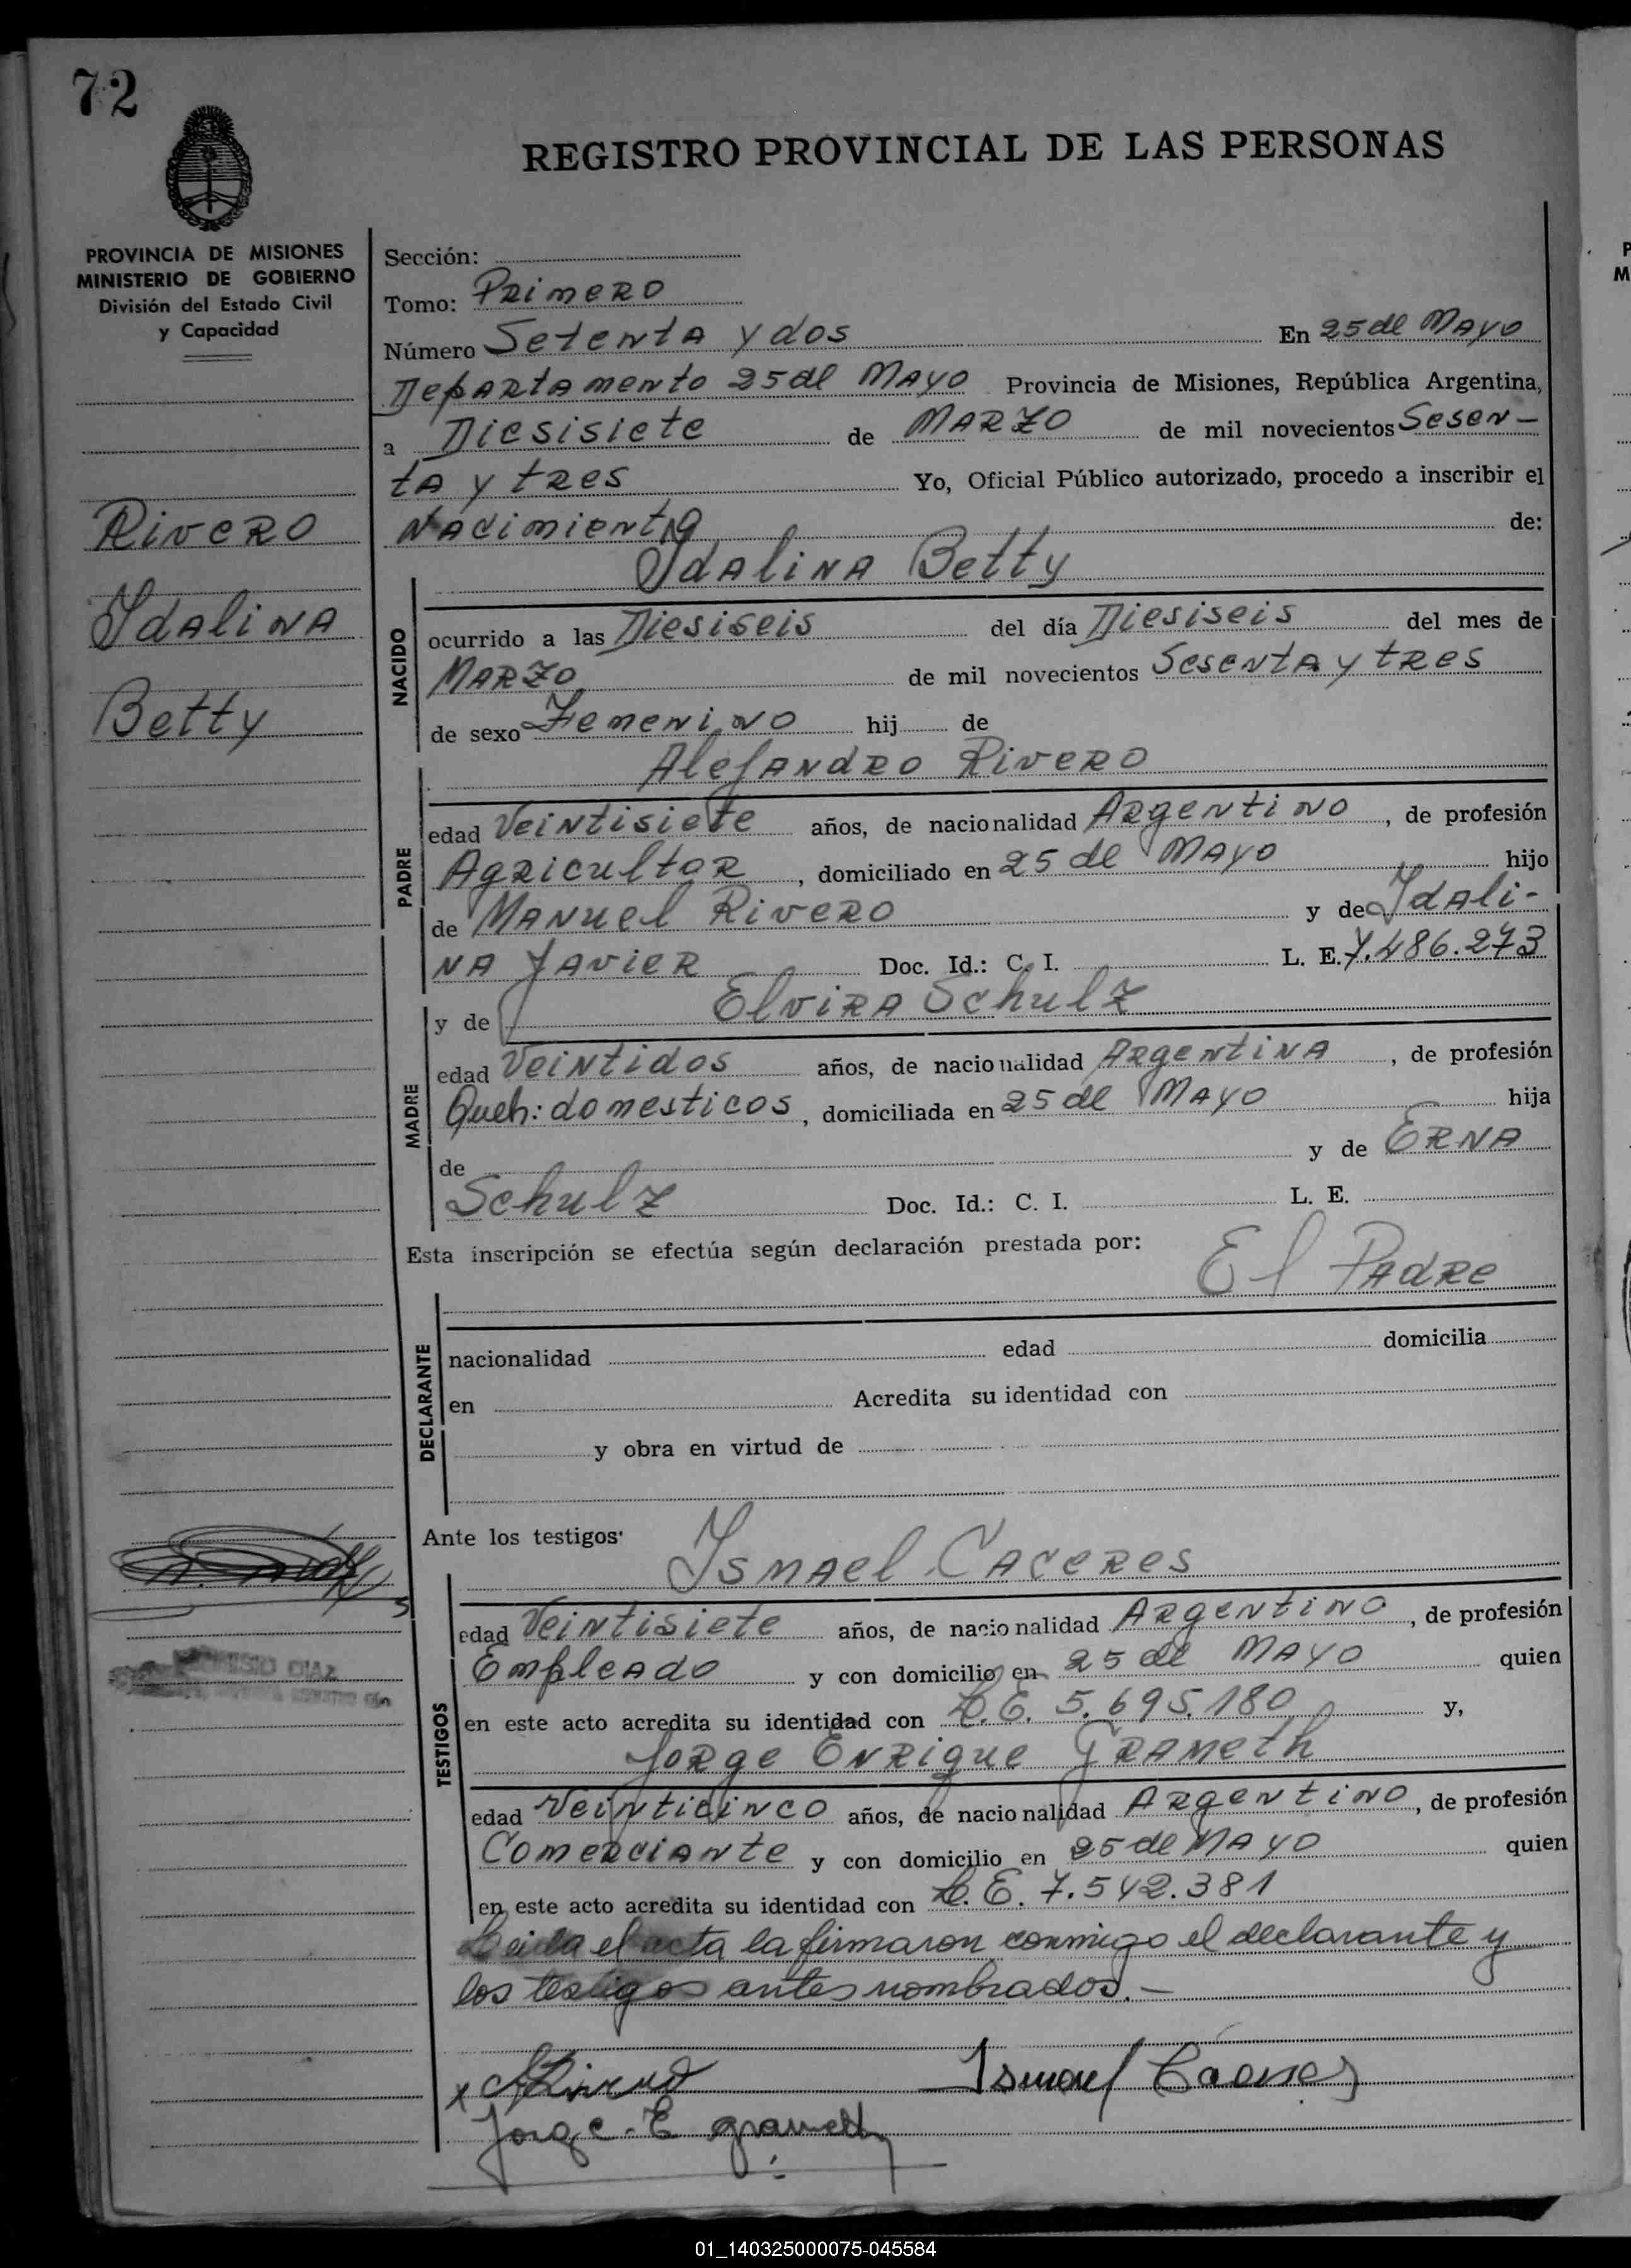 72
REGISTRO PROVINCIAL DE LAS PERSONAS
PROVINCIA DE MISIONES
MINISTERIO DE GOBIERNO
División del Estado Civil
y Capacidad
Rivero
Idalina
Betty
Sección:
Tomo: Primero
Número Setenta y dos En 25 de Mayo
Departamento 25 de Mayo Provincia de Misiones, República Argentina,
a Diesisiete de Marzo de mil novecientos Sesen-
ta y tres Yo, Oficial Público autorizado, procedo a inscribir el
Nacimiento de:
Idalina Betty
NACIDO
ocurrido a las Diesiseis del día Diesiseis del mes de
Marzo de mil novecientos Sesenta y tres
de sexo Femenino hij de
Alejandro Rivero
PADRE
edad Veintisiete años, de nacionalidad Argentino, de profesión
Agricultor, domiciliado en 25 de Mayo hijo
de Manuel Rivero y de Idali-
na Javier Doc. Id.: C. I. L. E. 7.486.273
y de Elvira Schulz
MADRE
edad Veintidos años, de nacionalidad Argentina, de profesión
Queh: domesticos, domiciliada en 25 de Mayo hija
de y de Erna
Schulz Doc. Id.: C. I. L. E.
Esta inscripción se efectúa según declaración prestada por: El Padre
DECLARANTE
nacionalidad edad domicilia
en Acredita su identidad con
y obra en virtud de
Ante los testigos:
Ismael Caceres
TESTIGOS
edad Veintisiete años, de nacionalidad Argentino, de profesión
Empleado y con domicilio en 25 de Mayo quien
en este acto acredita su identidad con L.E. 5.695.180 y,
Jorge Enrique Grameth
edad Veinticinco años, de nacionalidad Argentino, de profesión
Comerciante y con domicilio en 25 de Mayo quien
en este acto acredita su identidad con L.E. 7.542.381
Leida el acta la firmaron conmigo el declarante y
los testigos antes nombrados.-
DIAZ
x A Rivero Ismael Caceres
Jorge E Grameth
01_140325000075-045584